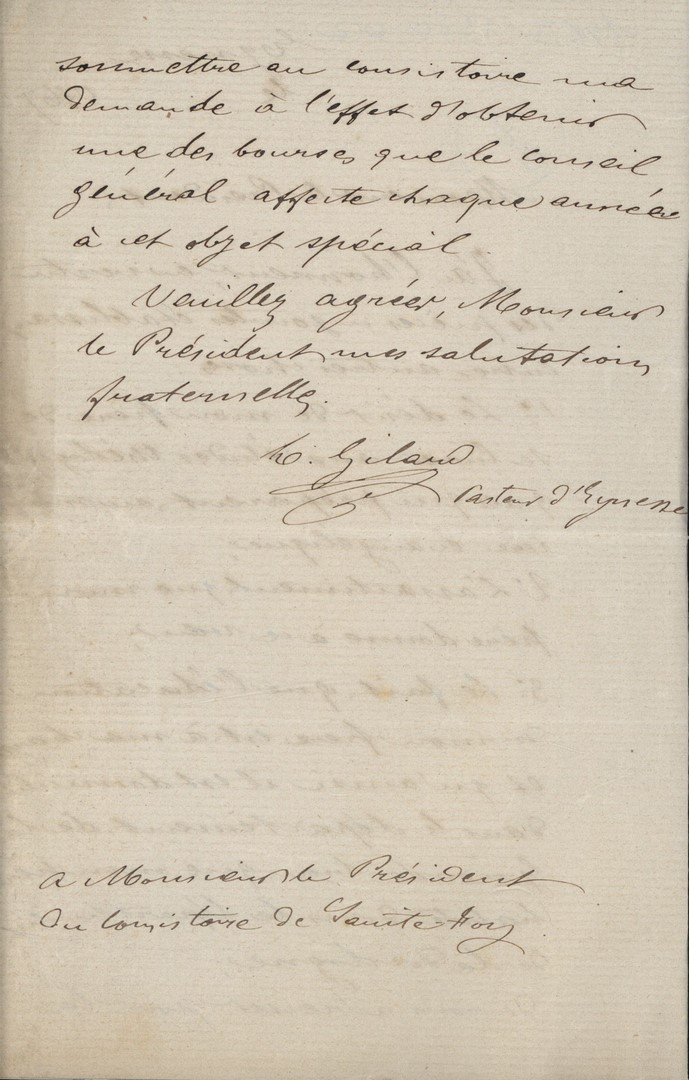 soumettre au consistoire ma
demande à l'effet d'obtenir
une des bourses que le conseil
général affecte chaque année
à cet objet spécial.
Veuillez agréer, Monsieur
le Président mes salutations
fraternelles.
Gilard
Pasteur d'Eynesse
A Monsieur le Président
du Consistoire de Sainte-Foy